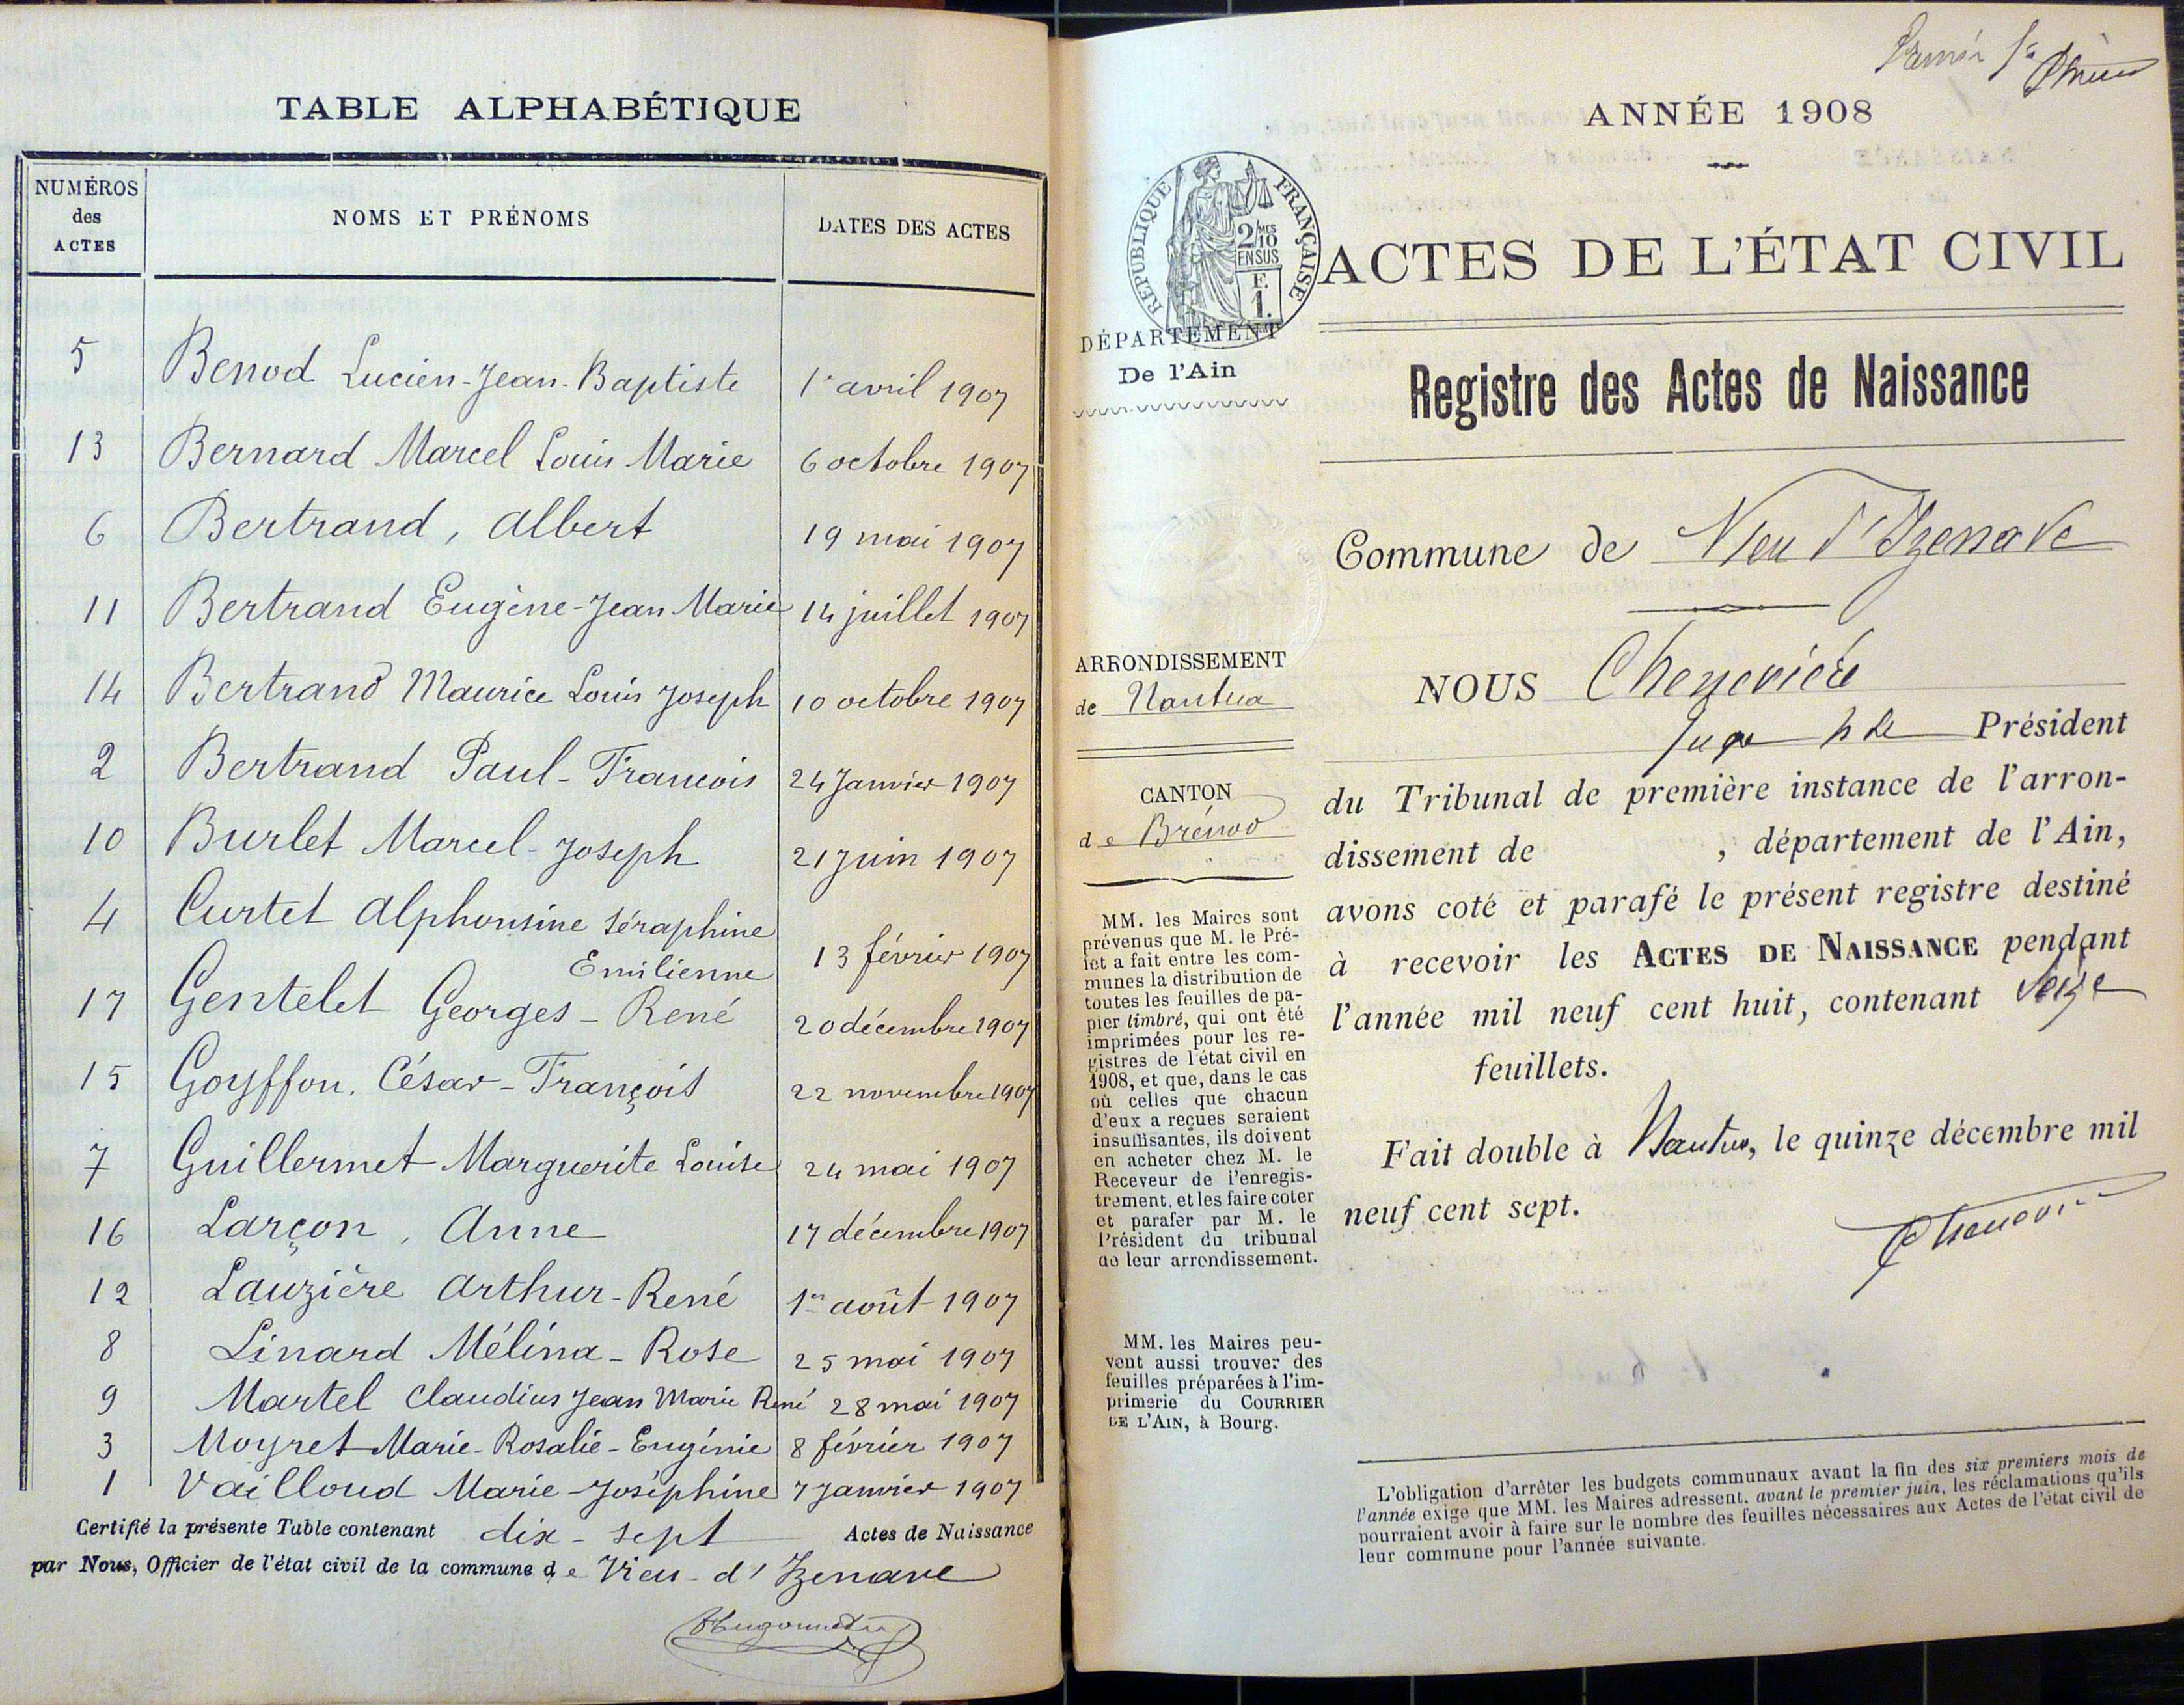 TABLE ALPHABÉTIQUE
NUMÉROS des ACTES NOMS ET PRÉNOMS DATES DES ACTES
5 Benod Lucien-Jean-Baptiste 1er avril 1907
13 Bernard Marcel Louis Marie 6 octobre 1907
6 Bertrand, Albert 19 mai 1907
11 Bertrand Eugène-Jean Marie 14 juillet 1907
14 Bertrand Maurice Louis Joseph 10 octobre 1907
2 Bertrand Paul-Francois 24 Janvier 1907
10 Burlet Marcel-Joseph 21 Juin 1907
4 Curtet Alphonsine Séraphine
Emilienne 13 février 1907
17 Gentelet Georges-René 20 décembre 1907
15 Goyffon, César-François 22 novembre 1907
7 Guillermet Marguerite Louise 24 mai 1907
16 Larçon, Anne 17 décembre 1907
12 Lauzière Arthur-René 1er août 1907
8 Linard Mélina-Rose 25 mai 1907
9 Martel Claudius Jean Marie René 28 mai 1907
3 Moyret Marie-Rosalie-Eugénie 8 février 1907
1 Vailloud Marie-Joséphine 7 Janvier 1907
Certifié la présente Table contenant dix-sept Actes de Naissance
par Nous, Officier de l'état civil de la commune de Vieu-d'Izenave
ANNÉE 1908
RÉPUBLIQUE FRANÇAISE
2/10 MES
EN SUS
F.
1.
ACTES DE L'ÉTAT CIVIL
DÉPARTEMENT
De l'Ain
Registre des Actes de Naissance
Commune de Vieu d'Izenave
ARRONDISSEMENT
de Nantua
CANTON
de Brénod
MM. les Maires sont
prévenus que M. le Pré-
fet a fait entre les com-
munes la distribution de
toutes les feuilles de pa-
pier timbré, qui ont été
imprimées pour les re-
gistres de l'état civil en
1908, et que, dans le cas
où celles que chacun
d'eux a reçues seraient
insuffisantes, ils doivent
en acheter chez M. le
Receveur de l'enregis-
trement, et les faire coter
et parafer par M. le
Président du tribunal
de leur arrondissement.
MM. les Maires peu-
vent aussi trouver des
feuilles préparées à l'im-
primerie du COURRIER
DE L'AIN, à Bourg.
NOUS Chenevière
Juge Président
du Tribunal de première instance de l'arron-
dissement de , département de l'Ain,
avons coté et parafé le présent registre destiné
à recevoir les ACTES DE NAISSANCE pendant
l'année mil neuf cent huit, contenant seize
feuillets.
Fait double à Nantua, le quinze décembre mil
neuf cent sept.
L'obligation d'arrêter les budgets communaux avant la fin des six premiers mois de
l'année exige que MM. les Maires adressent, avant le premier juin, les réclamations qu'ils
pourraient avoir à faire sur le nombre des feuilles nécessaires aux Actes de l'état civil de
leur commune pour l'année suivante.